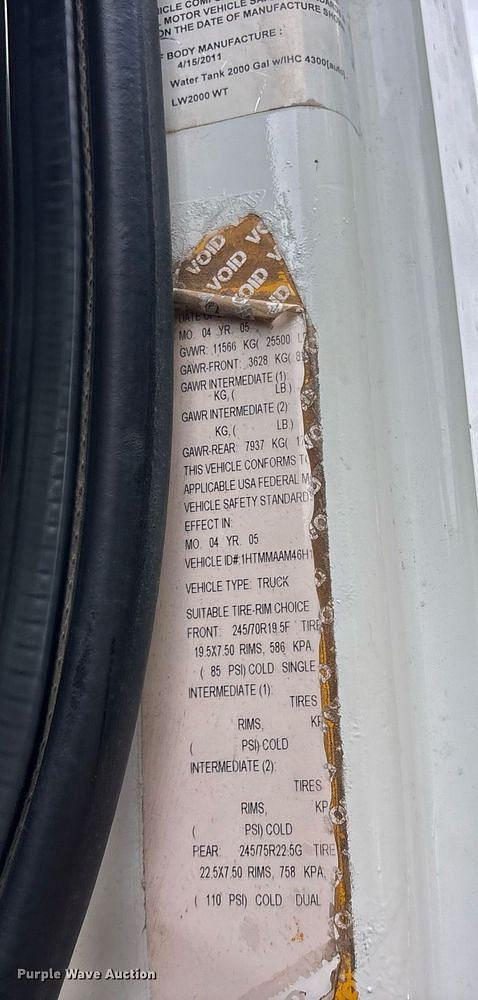 MOTOR VEHICLE
ON THE DATE OF MANUFACTURE
BODY MANUFACTURE :
4/15/2011
Water Tank 2000 Gal w/IHC 4300(auto)
LW2000 WT
VOID VO
VOID VOID
DATE OF
MO. 04 YR. 05
GVWR: 11566 KG( 25500
GAWR-FRONT: 3628 KG(
GAWR INTERMEDIATE (1):
KG, ( LB.)
GAWR INTERMEDIATE (2):
KG, ( LB.)
GAWR-REAR: 7937 KG( 1
THIS VEHICLE CONFORMS TO
APPLICABLE USA FEDERAL M
VEHICLE SAFETY STANDARDS
EFFECT IN:
MO. 04 YR. 05
VEHICLE ID#:1HTMMAAM46H1
VEHICLE TYPE: TRUCK
SUITABLE TIRE-RIM CHOICE
FRONT: 245/70R19.5F TIRE
19.5X7.50 RIMS, 586 KPA,
( 85 PSI) COLD SINGLE
INTERMEDIATE (1):
TIRES
RIMS, KP
( PSI) COLD
INTERMEDIATE (2):
TIRES
RIMS, KP
( PSI) COLD
REAR: 245/75R22.5G TIRE
22.5X7.50 RIMS, 758 KPA,
( 110 PSI) COLD DUAL
Purple Wave Auction